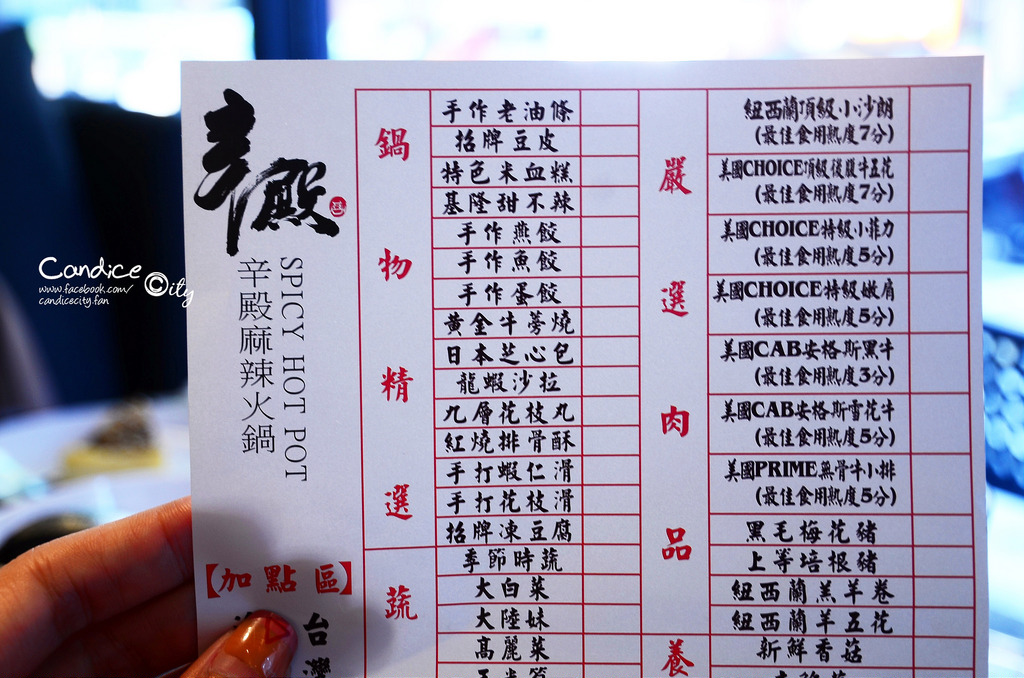 辛殿
辛殿麻辣火鍋
SPICY HOT POT
Candice City
www.facebook.com/
candicecity.fan
【加點區】
台灣
鍋物精選
手作老油條
招牌豆皮
特色米血糕
基隆甜不辣
手作燕餃
手作魚餃
手作蛋餃
黃金牛蒡燒
日本芝心包
龍蝦沙拉
九層花枝丸
紅燒排骨酥
手打蝦仁滑
手打花枝滑
招牌凍豆腐
蔬
季節時蔬
大白菜
大陸妹
高麗菜
嚴選肉品
紐西蘭頂級小沙朗
(最佳食用熟度7分)
美國CHOICE頂級後腹牛五花
(最佳食用熟度7分)
美國CHOICE特級小菲力
(最佳食用熟度5分)
美國CHOICE特級嫩肩
(最佳食用熟度5分)
美國CAB安格斯黑牛
(最佳食用熟度3分)
美國CAB安格斯雪花牛
(最佳食用熟度5分)
美國PRIME無骨牛小排
(最佳食用熟度5分)
黑毛梅花豬
上等培根豬
紐西蘭羔羊卷
紐西蘭羊五花
養
新鮮香菇